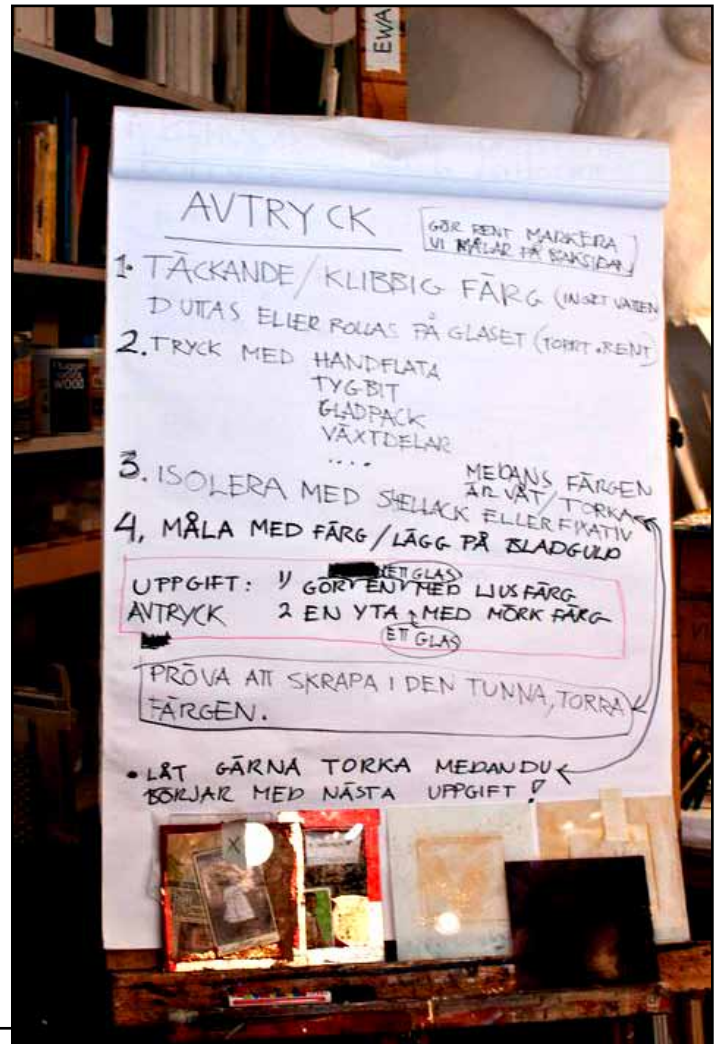 EWA
AVTRYCK
GÖR RENT MARKERA
VI MÅLAR PÅ BAKSIDAN
1. TÄCKANDE/KLIBBIG FÄRG (INGET VATTEN
DUTTAS ELLER ROLLAS PÅ GLASET (TORRT.RENT)
2. TRYCK MED HANDFLATA
TYGBIT
GLADPACK
VÄXTDELAR
....
MEDANS FÄRGEN
ÄR VÅT/TORKA
3. ISOLERA MED SHELLACK ELLER FIXATIV
4, MÅLA MED FÄRG/LÄGG PÅ BLADGULD
ETT GLAS
UPPGIFT: 1) GÖR EN MED LJUS FÄRG
AVTRYCK 2 EN YTA MED MÖRK FÄRG
ETT GLAS
PRÖVA ATT SKRAPA I DEN TUNNA, TORRA
FÄRGEN.
• LÅT GÄRNA TORKA MEDAN DU
BÖRJAR MED NÄSTA UPPGIFT!
WOOD
X